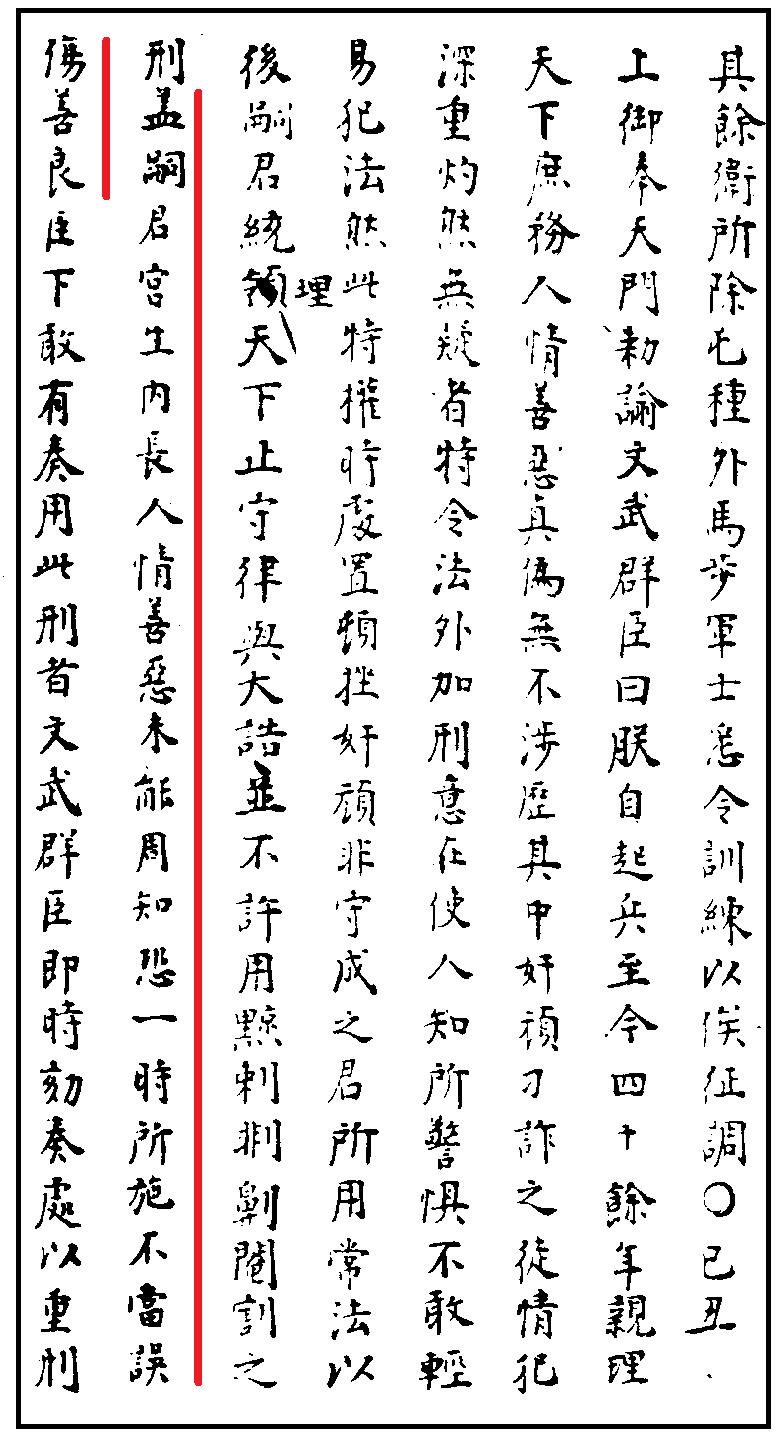 其餘衛所除屯種外馬步軍士悉令訓練以俟征調○己丑
上御奉天門勑諭文武群臣曰朕自起兵至今四十餘年親理
天下庶務人情善惡真偽無不涉歷其中奸頑刁詐之徒情犯
深重灼然無疑者特令法外加刑意在使人知所警惧不敢輕
易犯法然此特權時處置頓挫奸頑非守成之君所用常法以
後嗣君統領理天下止守律與大誥並不許用黥刺剕劓閹割之
刑盖嗣君宮生內長人情善惡未能周知恐一時所施不當誤
傷善良臣下敢有奏用此刑者文武群臣即時刻奏處以重刑